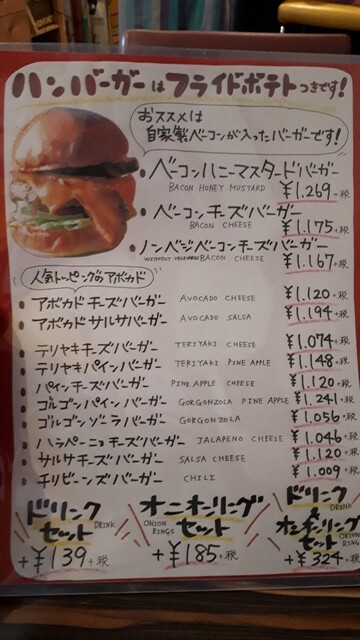 ハンバーガーはフライドポテトつきです!
おススメは
自家製ベーコンが入ったバーガーです!
・ベーコンハニーマスタードバーガー
BACON HONEY MUSTARD ¥1.269+税
・ベーコンチーズバーガー
BACON CHEESE ¥1.175+税
・ノンベジベーコンチーズバーガー
WITHOUT VEGETABLE BACON CHEESE ¥1.167+税
人気トッピングのアボカド
・アボカドチーズバーガー AVOCADO CHEESE ¥1.120+税
・アボカドサルサバーガー AVOCADO SALSA ¥1.194+税
・テリヤキチーズバーガー TERIYAKI CHEESE ¥1.074+税
・テリヤキパインバーガー TERIYAKI PINE APPLE ¥1.148+税
・パインチーズバーガー PINE APPLE CHEESE ¥1.120+税
・ゴルゴンパインバーガー GORGONZOLA PINE APPLE ¥1.241+税
・ゴルゴンゾーラバーガー GORGONZOLA ¥1.056+税
・ハラペーニョチーズバーガー JALAPENO CHEESE ¥1.046+税
・サルサチーズバーガー SALSA CHEESE ¥1.120+税
・チリビーンズバーガー CHILI ¥1.009+税
ドリンク
セット DRINK
+¥139+税
オニオンリング
ONION RINGS セット
+¥185+税
ドリンク
DRINK
&
オニオンリング
セット ONION RINGS
+¥324+税